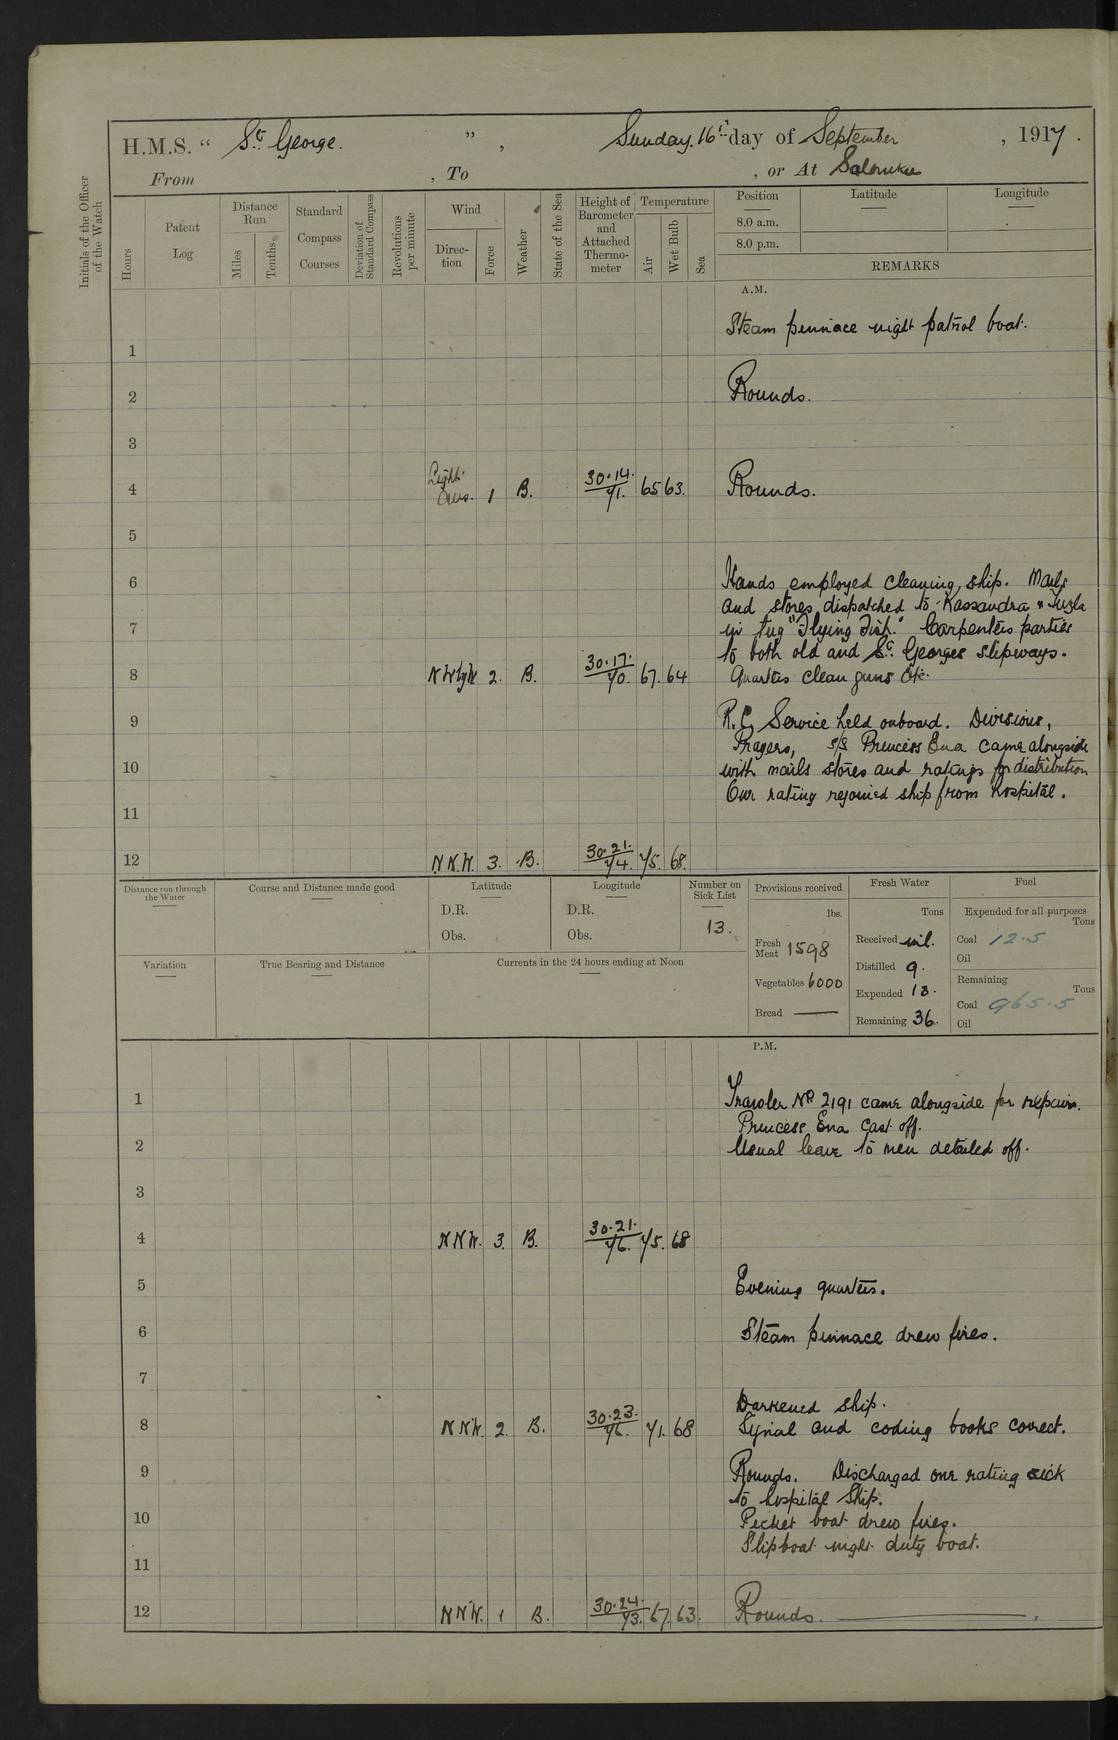 H.M.S. " St George. ", Sunday. 16th day of September, 1917.
From , To , or At Salonika
Initials of the Officer of the Watch
Hours
Patent Log
Distance Run
Miles
Tenths
Standard Compass Courses
Deviation of Standard Compass
Revolutions per minute
Wind
Direction
Force
Weather
State of the Sea
Height of Barometer and Attached Thermometer
Temperature
Air
Wet Bulb
Sea
Position
Latitude
Longitude
8.0 a.m.
8.0 p.m.
REMARKS
A.M.
Steam pinnace night patrol boat.
1
2 Rounds.
3
4 Light Airs. 1 B. 30.14. 71. 65 63. Rounds.
5
6 Hands employed cleaning ship. Mails
and stores dispatched to Kassandra & Tuzla
7 in tug "Flying Fish." Carpenters parties
to both old and St. Georges slipways.
8 NWbyW 2. B. 30.17. 70. 67. 64 Quarters clean guns etc.
9 R.C. Service held onboard. Divisions,
Prayers, s/s Princess Ena came alongside
10 with mails stores and ratings for distribution
One rating rejoined ship from hospital.
11
12 N.N.W. 3. B. 30.21. 74. 75. 68.
Distance run through the Water
Course and Distance made good
Latitude
D.R.
Obs.
Longitude
D.R.
Obs.
Number on Sick List
13.
Provisions received
lbs.
Fresh Meat 1598
Vegetables 6000
Bread ——
Fresh Water
Tons
Received nil.
Distilled 9.
Expended 13.
Remaining 36.
Fuel
Expended for all purposes
Tons
Coal 12.5
Oil
Remaining
Tons
Coal 965.5
Oil
Variation
True Bearing and Distance
Currents in the 24 hours ending at Noon
P.M.
1 Trawler No 2191 came alongside for repairs.
Princess Ena cast off.
2 Usual leave to men detailed off.
3
4 NNW. 3. B. 30.21. 76. 75. 68
5 Evening quarters.
6 Steam pinnace drew fires.
7
Darkened ship.
8 NNW. 2. B. 30.23. 76. 71. 68 Signal and coding books correct.
9 Rounds. Discharged one rating sick
to hospital ship.
10 Picket boat drew fires.
Slipboat night duty boat.
11
12 NNW. 1 B. 30.24. 73. 67. 63. Rounds.